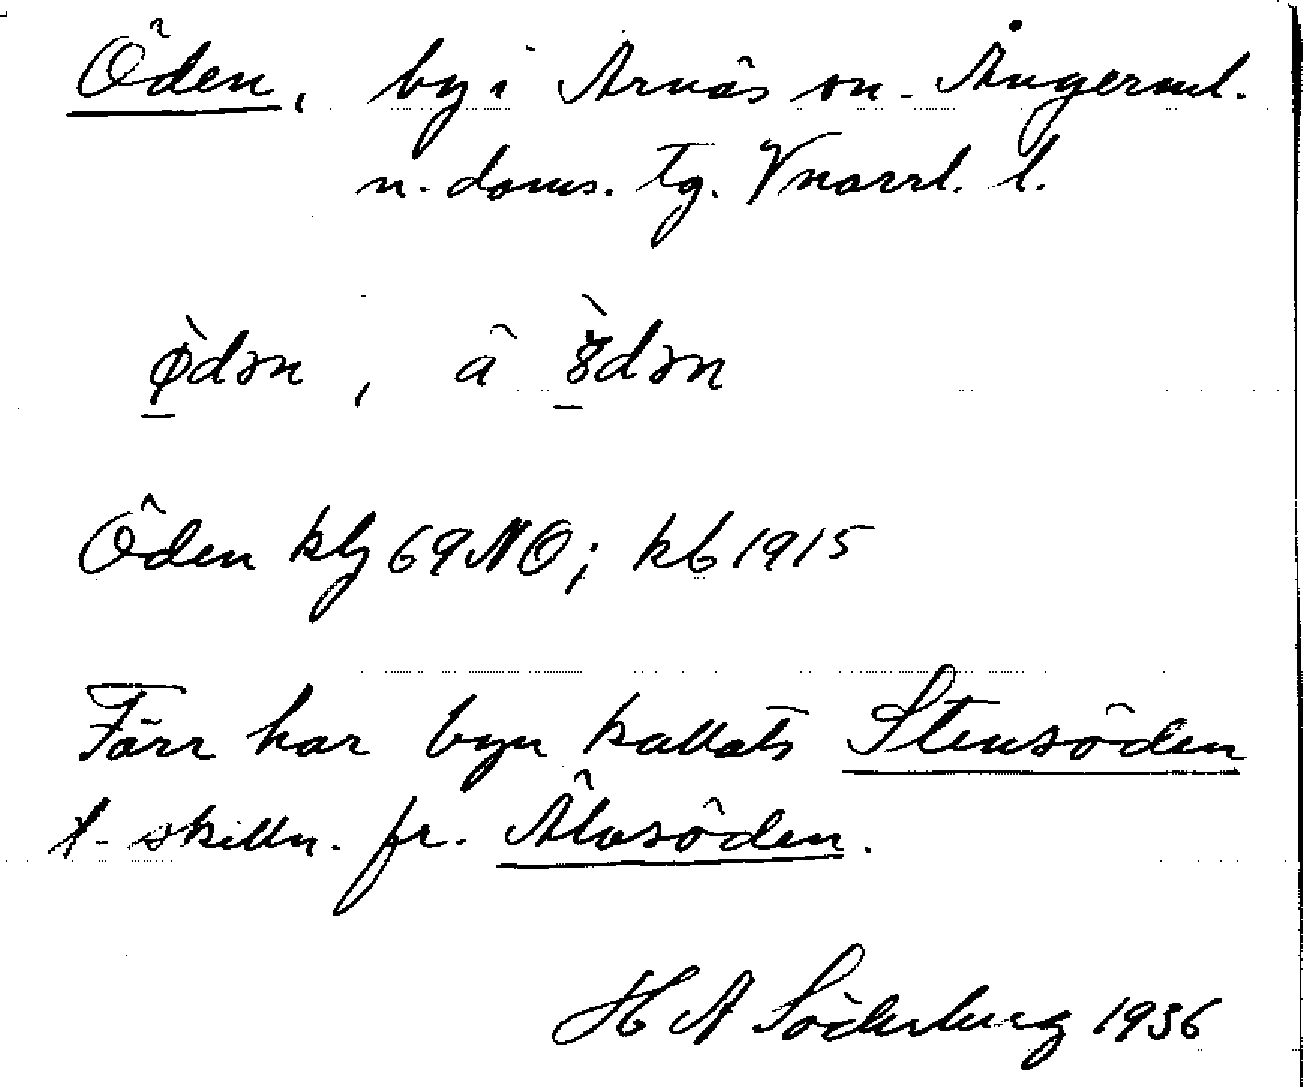 Öden, by i Arnäs sn. Ångerml.
n. doms. tg. Vnorrl. l.
ø̀dən, å ö̀dən
Öden kbg 69 NO; kb 1915
Förr har byn kallats Stensöden
t. skilln. fr. Älvsöden.
H A Söderberg 1936